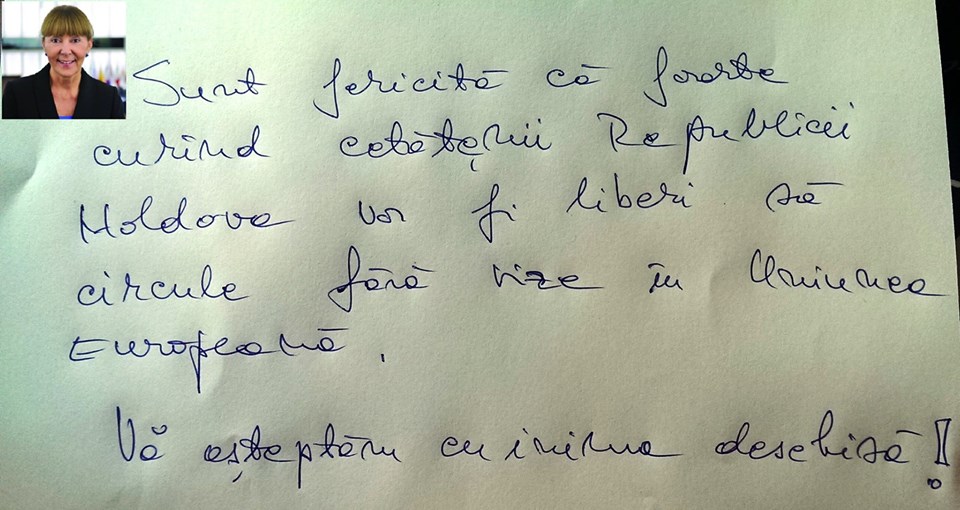 Sunt fericită că foarte
curînd cetățenii Republicii
Moldova vor fi liberi să
circule fără vize în Uniunea
Europeană.
Vă așteptăm cu inima deschisă!